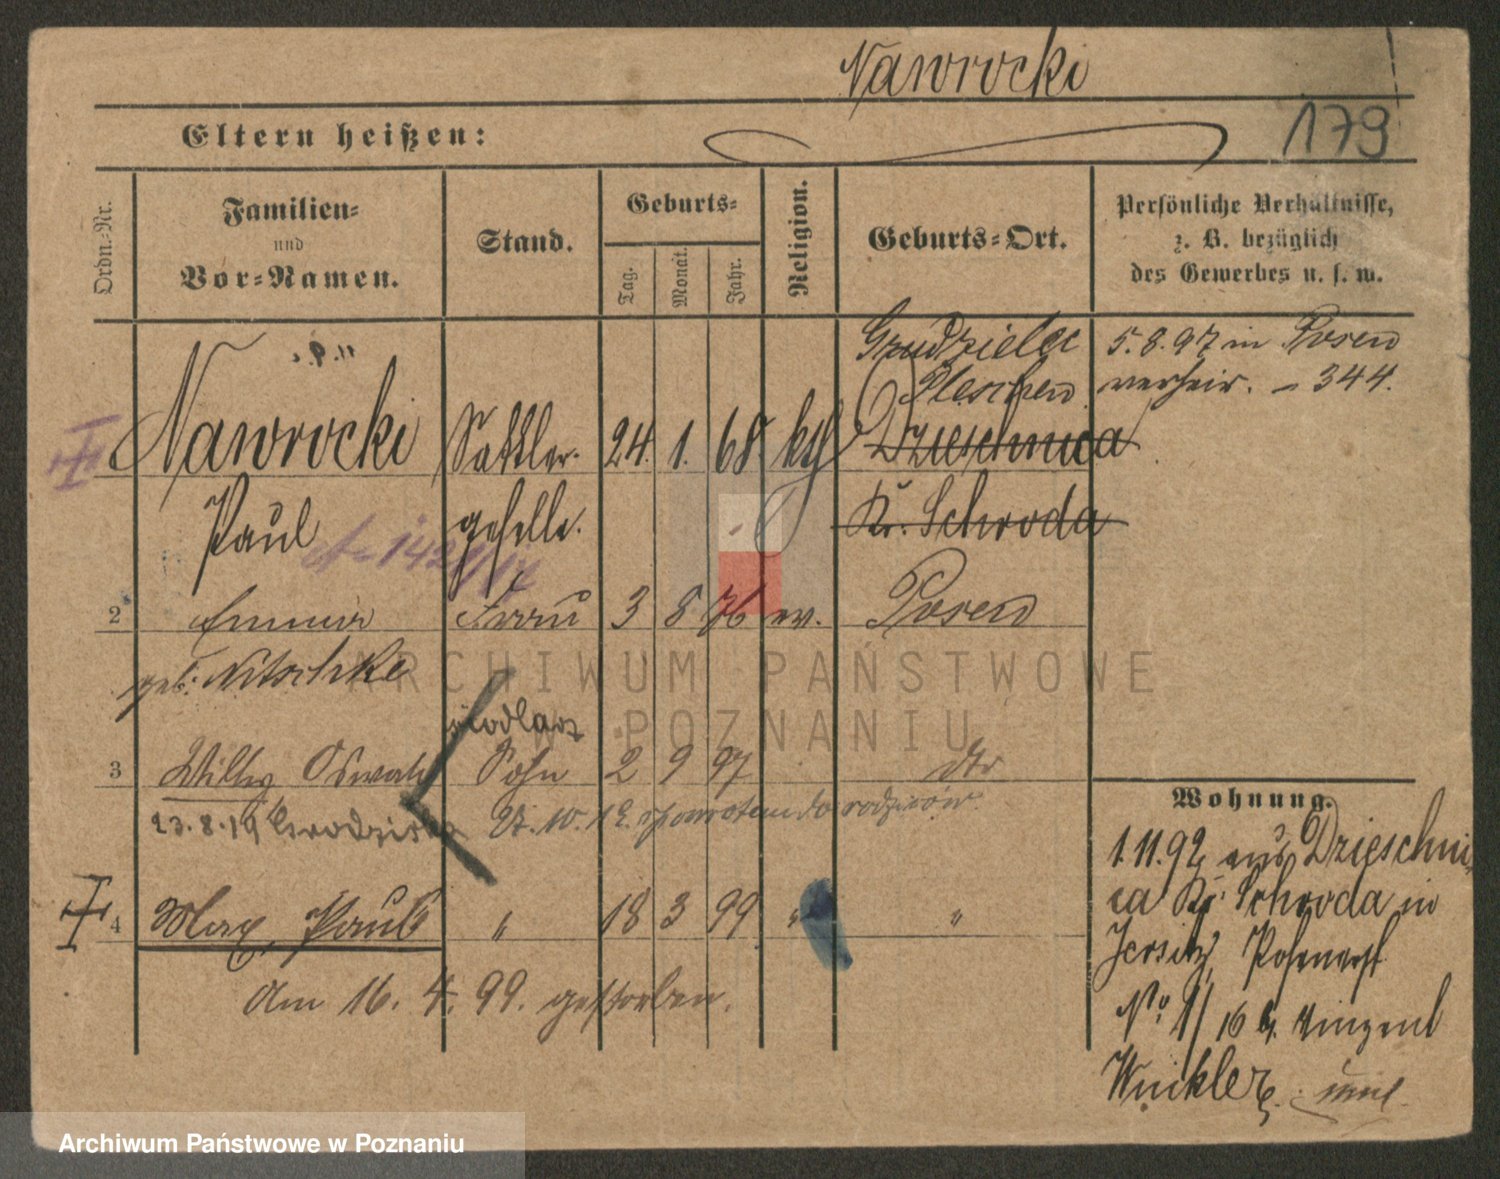 Nawrocki
179
Eltern heißen:
Ordn.-Nr.
Familien-
und
Vor-Namen.
Stand.
Geburts-
Tag.
Monat.
Jahr.
Religion.
Geburts-Ort.
Persönliche Verhältnisse,
z. B. bezüglich
des Gewerbes u. s. w.
Grudzielec
Pleschen
5.8.97 in Posen
verheir. - 344.
Nawrocki Sattler- 24. 1. 68. kth Dzieschnica
Paul geselle. Kr. Schroda
2 Emma Frau 3 8 76 ev. Posen
geb. Nitschke
3 Willy Oswald Sohn 2 9 97 dto
23.8.19 Grodzisk 27.10.19. spowrotem do rodziców.
4 Max, Paul " 18 3 99 " "
am 16. 4. 99. gestorben.
Wohnung.
1.11.92 aus Dzieschni
ca Kr. Schroda in
Jersitz, Posenerst
No 1/16 b. Vinzent
Winkler
ARCHIWUM PAŃSTWOWE
W POZNANIU
Archiwum Państwowe w Poznaniu